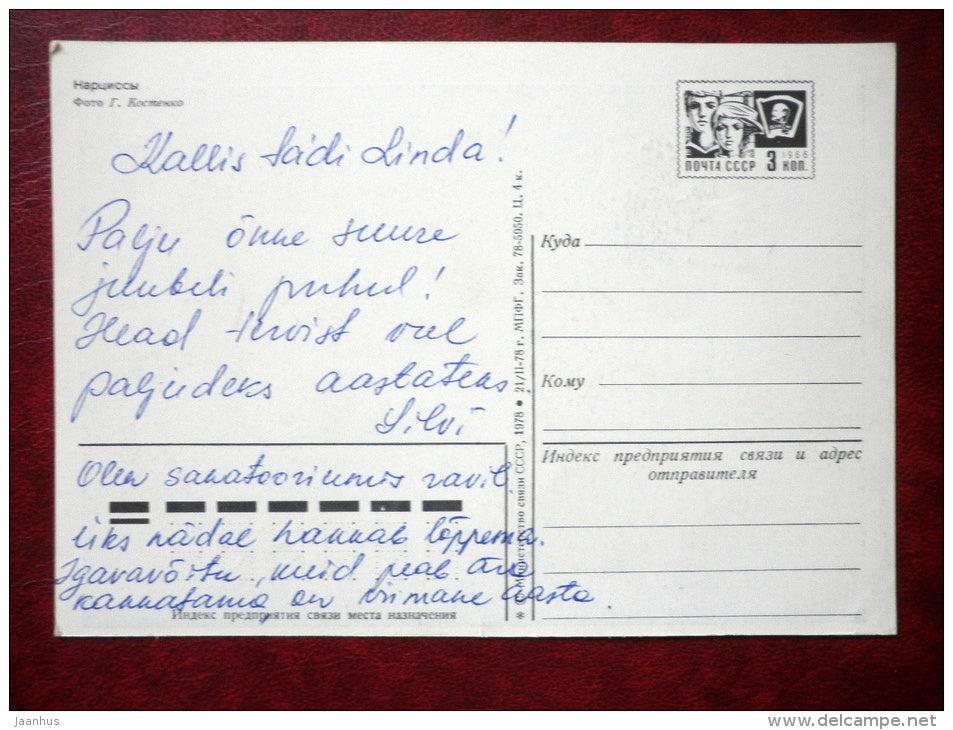 Нарциссы
Фото Г. Костенко
ПОЧТА СССР 3 КОП.
1966
Kallis tädi Linda!
Palju õnne suure
juubeli puhul!
Head tervist veel
paljudeks aastateks.
Silvi
Olen sanatooriumis ravil.
üks nädal hakkab lõppema.
Igavavõitu, kuid peab ära
kannatama, on viimane aasta.
Индекс предприятия связи места назначения
* © Министерство связи СССР, 1978 ● 21/II-78 г. МПФГ. Зак. 78-5950. Ц. 4 к.
Куда
Кому
Индекс предприятия связи и адрес
отправителя
Jaanhus
www.delcampe.net